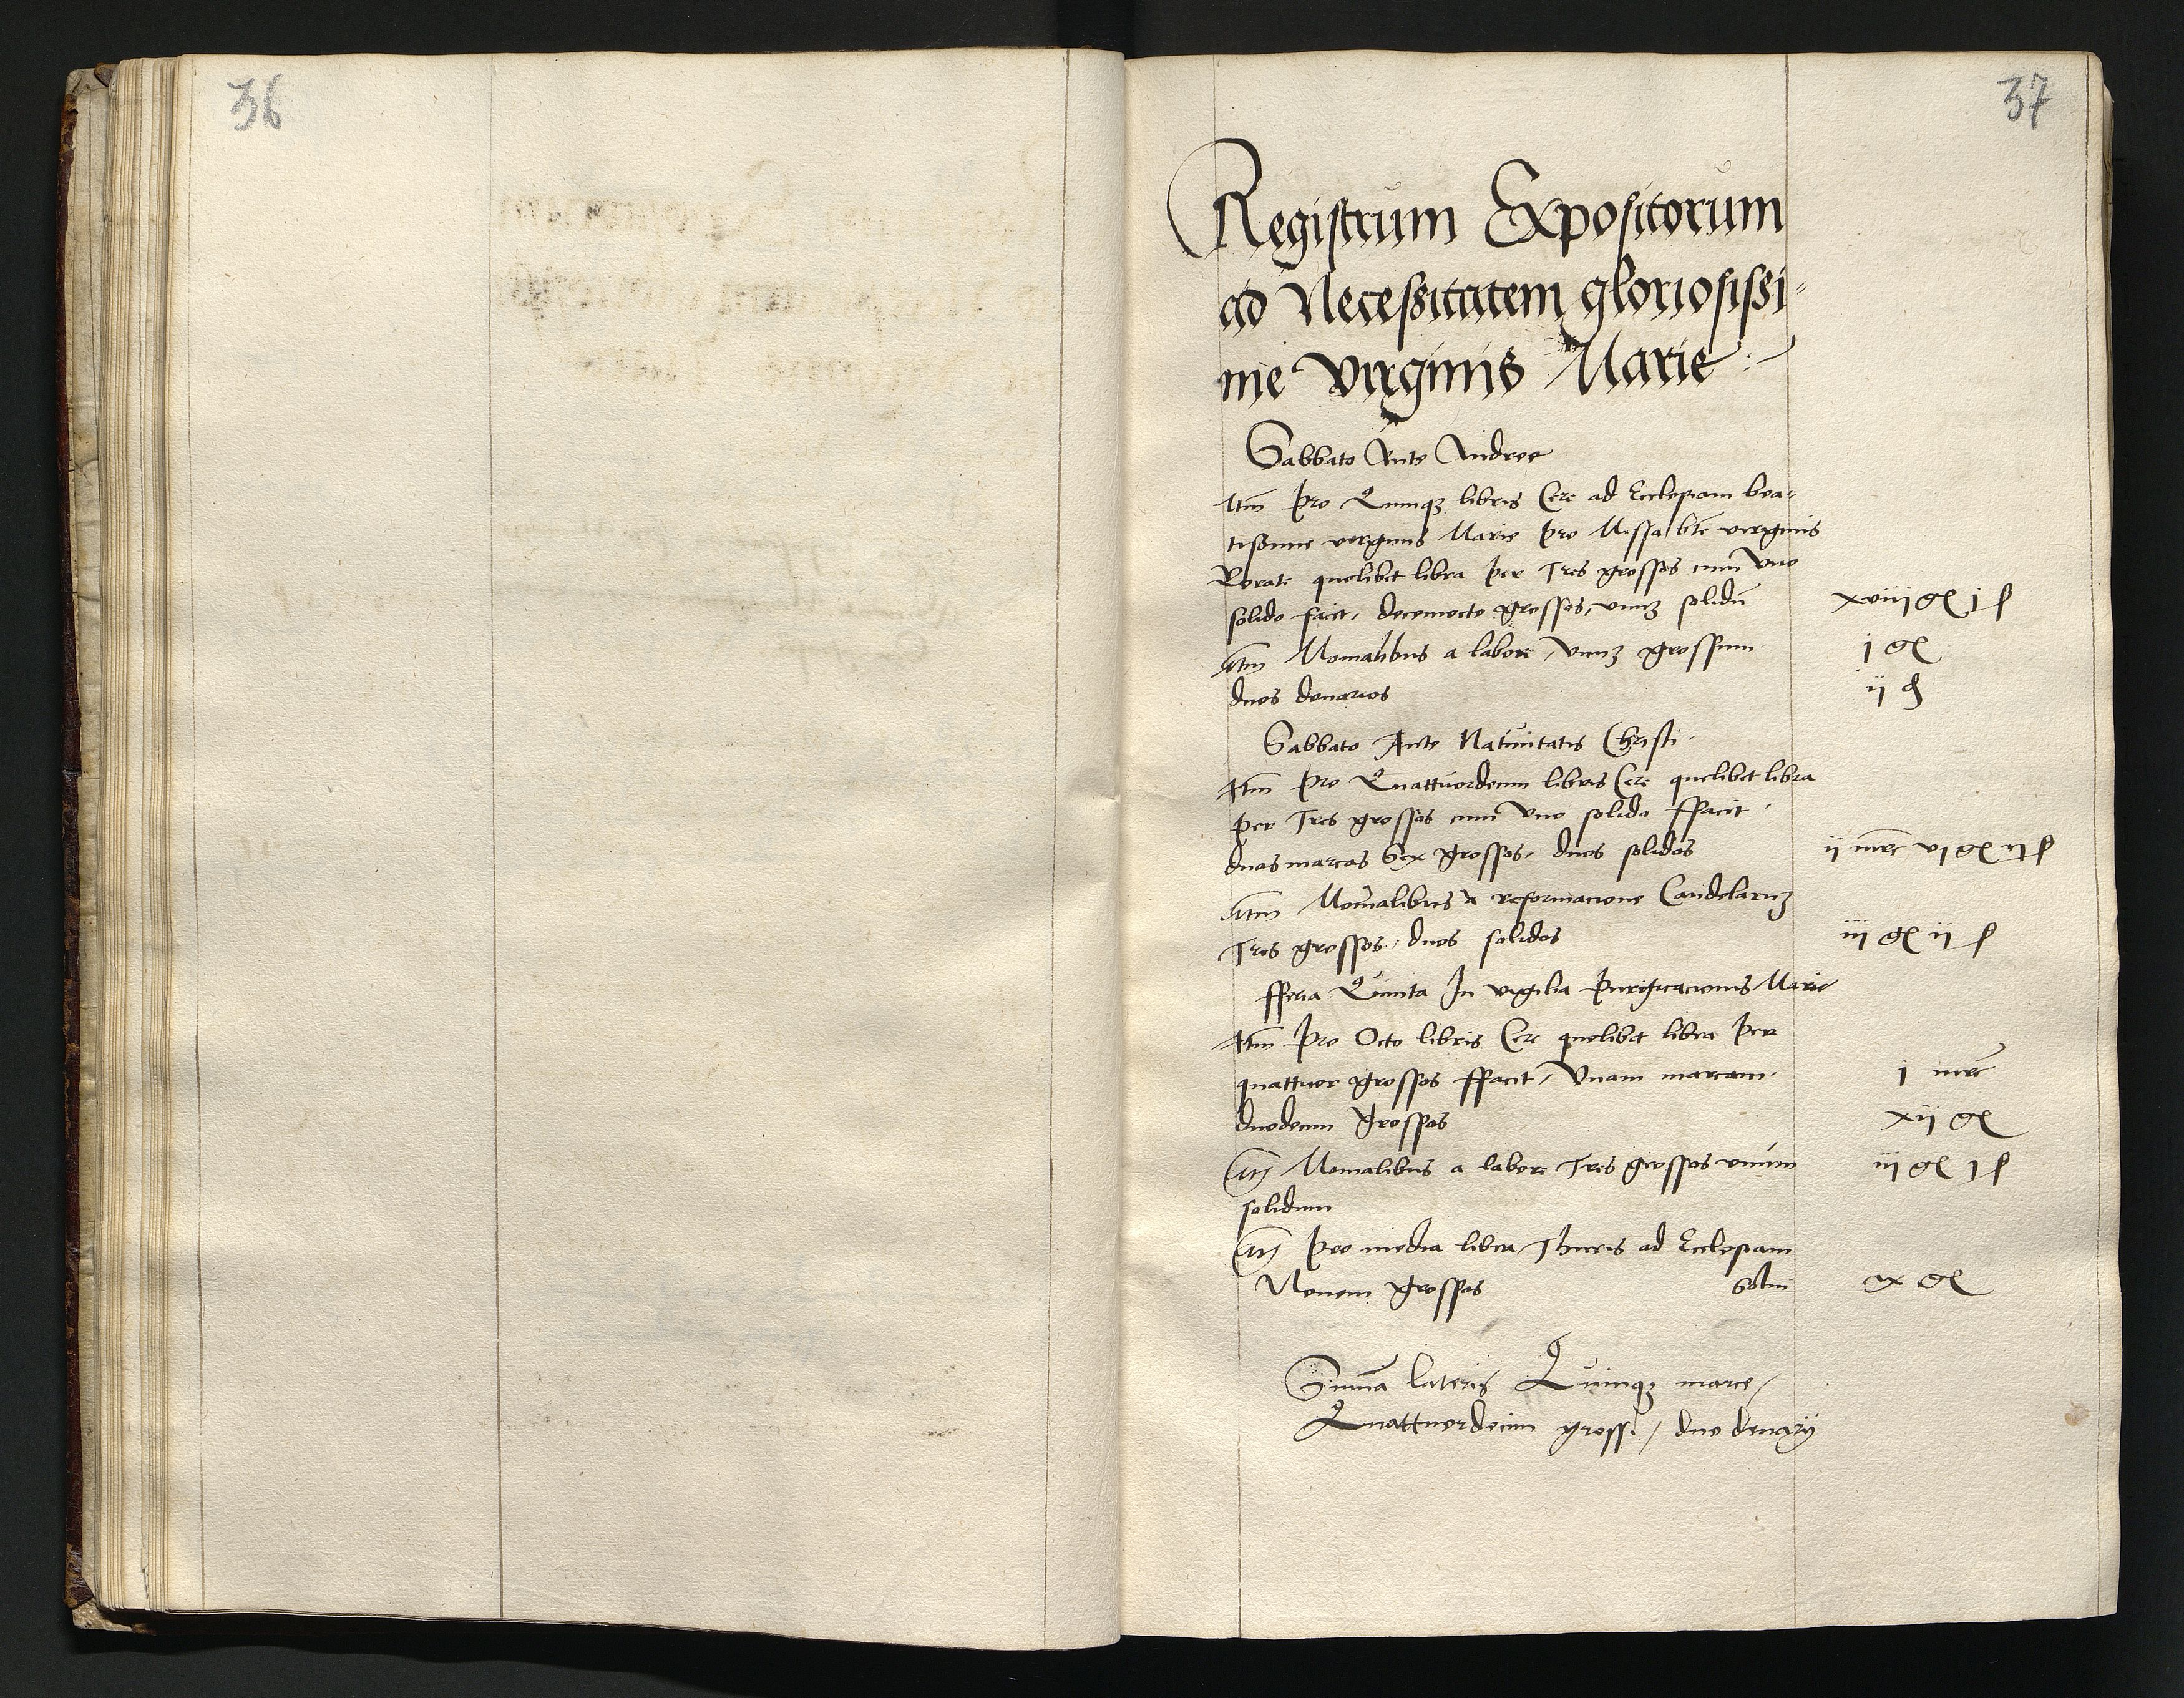 36
37
Registrum Expositorum
ad Necessitatem gloriosissi-
me virginis Marie
Sabbato Ante Andree
Itm̄ pro Quinqʒ libris Cere ad Ecclesiam bea-
tissime virginis Marie pro Missa bte virginis
Rorate quelibet libra per Tres grossos cum vno
solido facit, decemocto grossos, vnuʒ solidū xviij gr j s
Itm̄ Monialibus a labore, vnuʒ grossum j gr
duos denarios ij d
Sabbato Ante Natiuitatis Christi.
Itm̄ pro Quattuordecim libris Cere quelibet libra
per Tres grossos cum vno solido ffacit
duas marcas Sex grossos, duos solidos ij mrc vj gr ij s
Itm̄ Monialibus a reformacione Candelaruʒ
Tres grossos, duos solidos iij gr ij s
fferia Quinta In vigilia Purificacionis Marie
Itm̄ pro Octo libris Cere quelibet libra per
quattuor grossos ffacit, Vnam marcam. j mrc
duodecim grossos xij gr
Itm̄ Monialibus a labore Tres grossos vnum iij gr j s
solidum
Itm̄ pro media libra Thuris ad Ecclesiam
Nouem grossos ix gr
Summa lateris Quinqʒ marce,
Quattuordecim gross., duo denarij